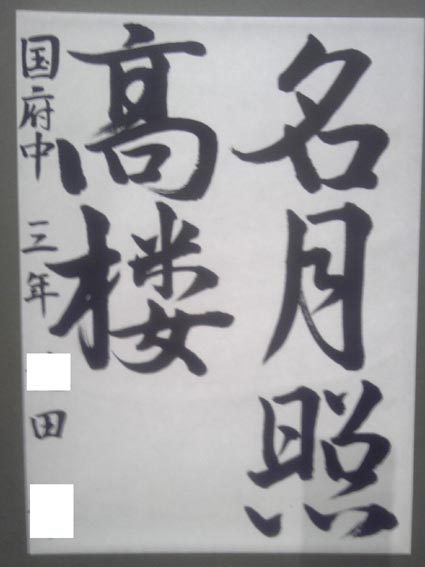 名月照
高楼
国府中 三年 田